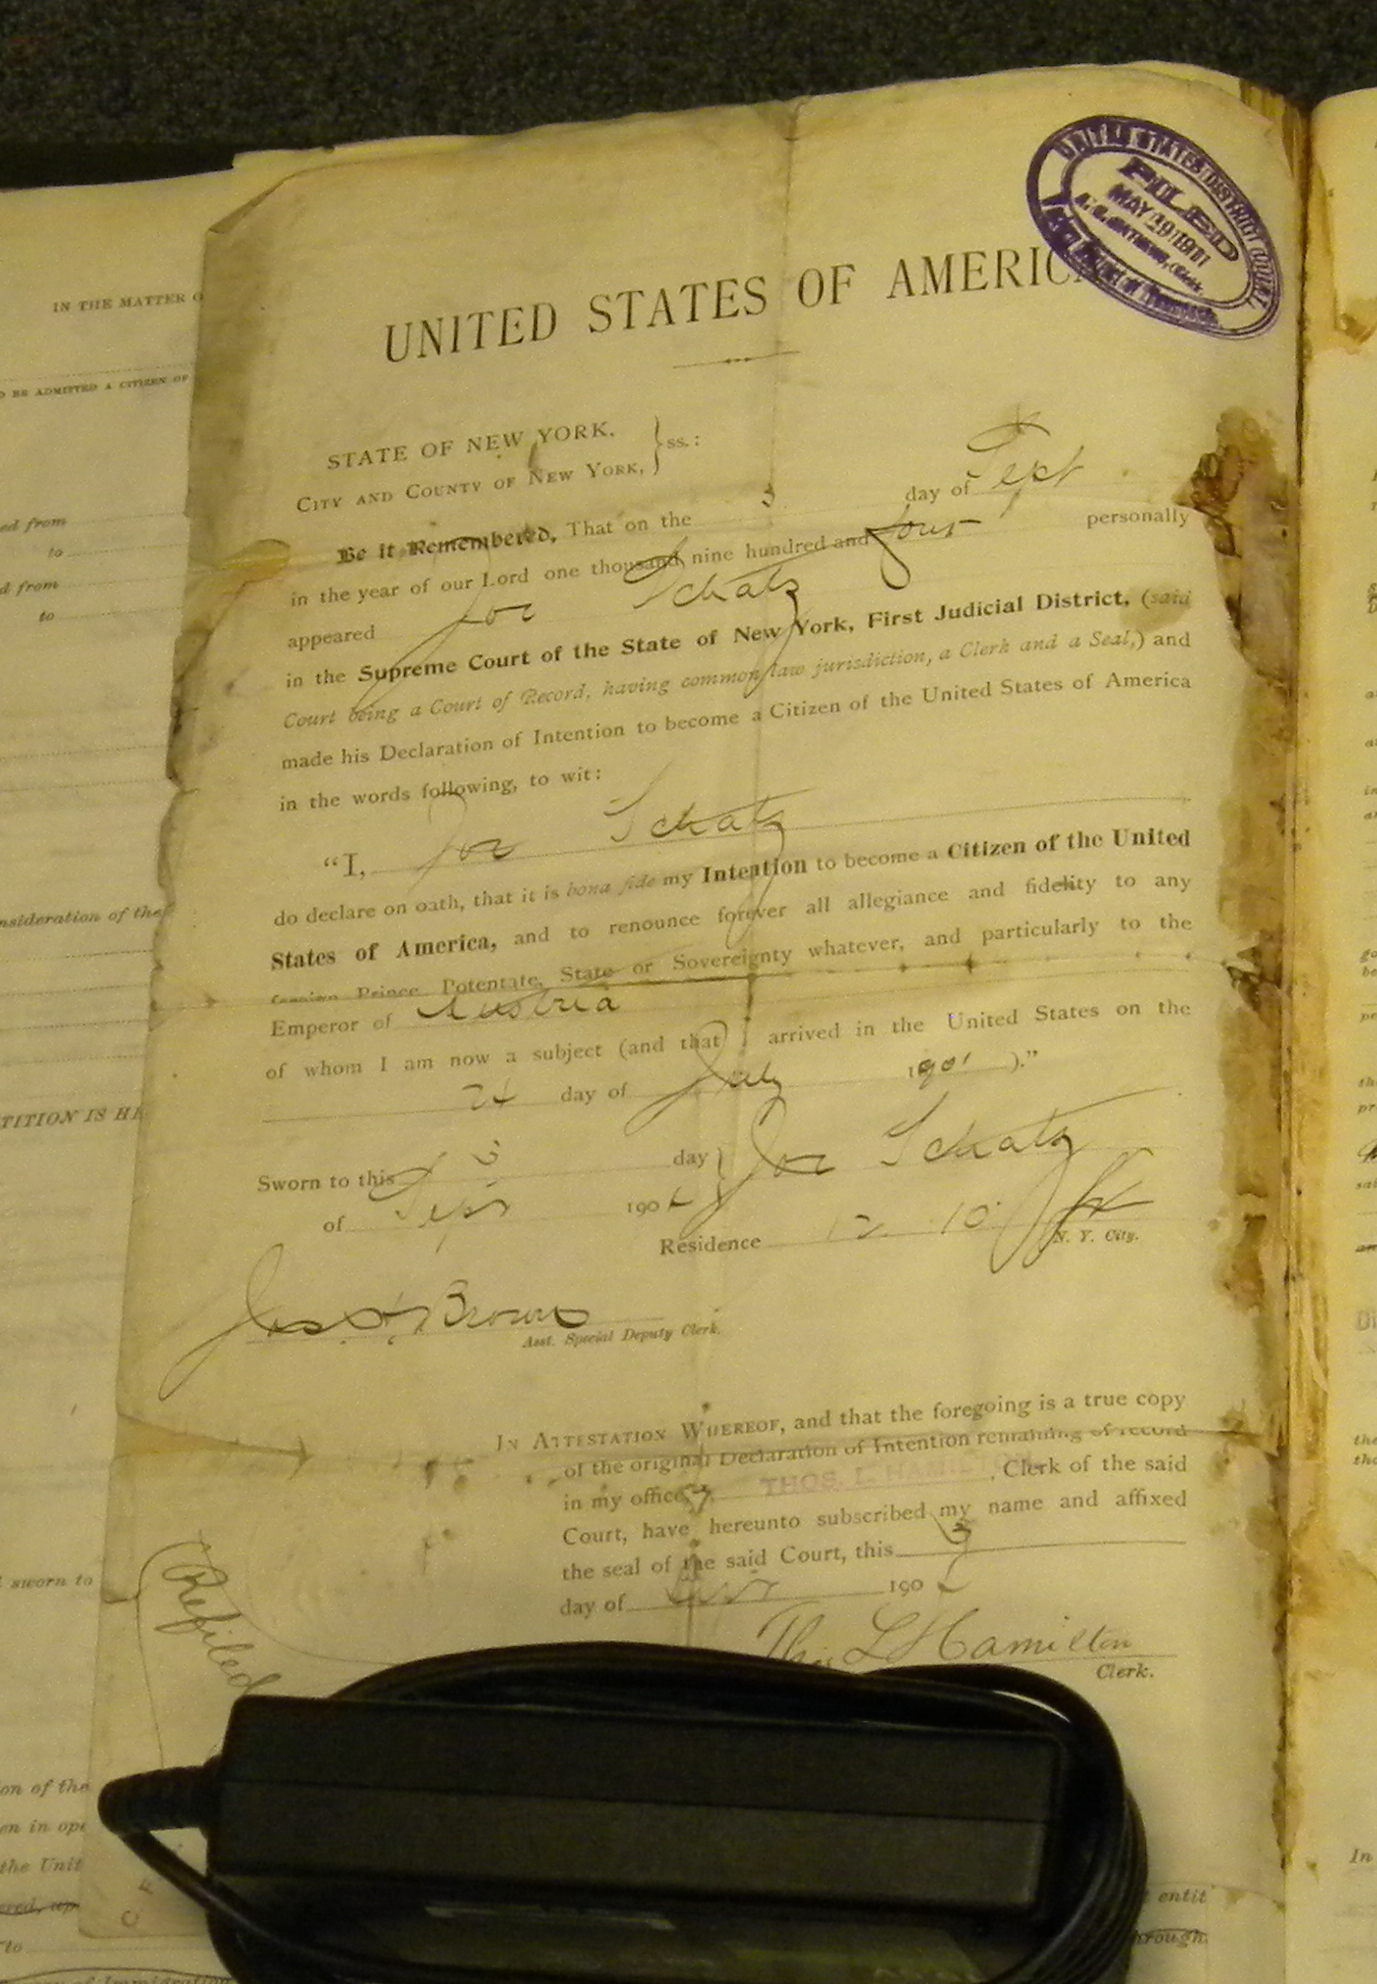 UNITED STATES DISTRICT COURT
FILED
MAY 29 1911
Clerk.
District of
UNITED STATES OF AMERICA
STATE OF NEW YORK,
CITY AND COUNTY OF NEW YORK, } ss.:
Be it Remembered, That on the 3 day of Sept
in the year of our Lord one thousand nine hundred and four personally
appeared Joe Schatz
in the Supreme Court of the State of New York, First Judicial District, (said
Court being a Court of Record, having common law jurisdiction, a Clerk and a Seal,) and
made his Declaration of Intention to become a Citizen of the United States of America
in the words following, to wit:
"I, Joe Schatz
do declare on oath, that it is bona fide my Intention to become a Citizen of the United
States of America, and to renounce forever all allegiance and fidelity to any
foreign Prince, Potentate, State or Sovereignty whatever, and particularly to the
Emperor of Austria
of whom I am now a subject (and that I arrived in the United States on the
24 day of July 1901 )."
Sworn to this 3 day } Joe Schatz
of Sept 190 4
Residence 12 10 St
N. Y. City.
Jas A Brown
Asst. Special Deputy Clerk.
IN ATTESTATION WHEREOF, and that the foregoing is a true copy
of the original Declaration of Intention remaining of record
in my office, I, THOS. L. HAMILTON, Clerk of the said
Court, have hereunto subscribed my name and affixed
the seal of the said Court, this 3
day of Sept 190 4
Thos L Hamilton
Clerk.
Refiled
IN THE MATTER O
O BE ADMITTED A CITIZEN OF
ed from
to
d from
to
nsideration of the
TITION IS HE
sworn to
on of the
en in ope
the Unit
ered, up
to
y of Immigration
entit
hrough
In